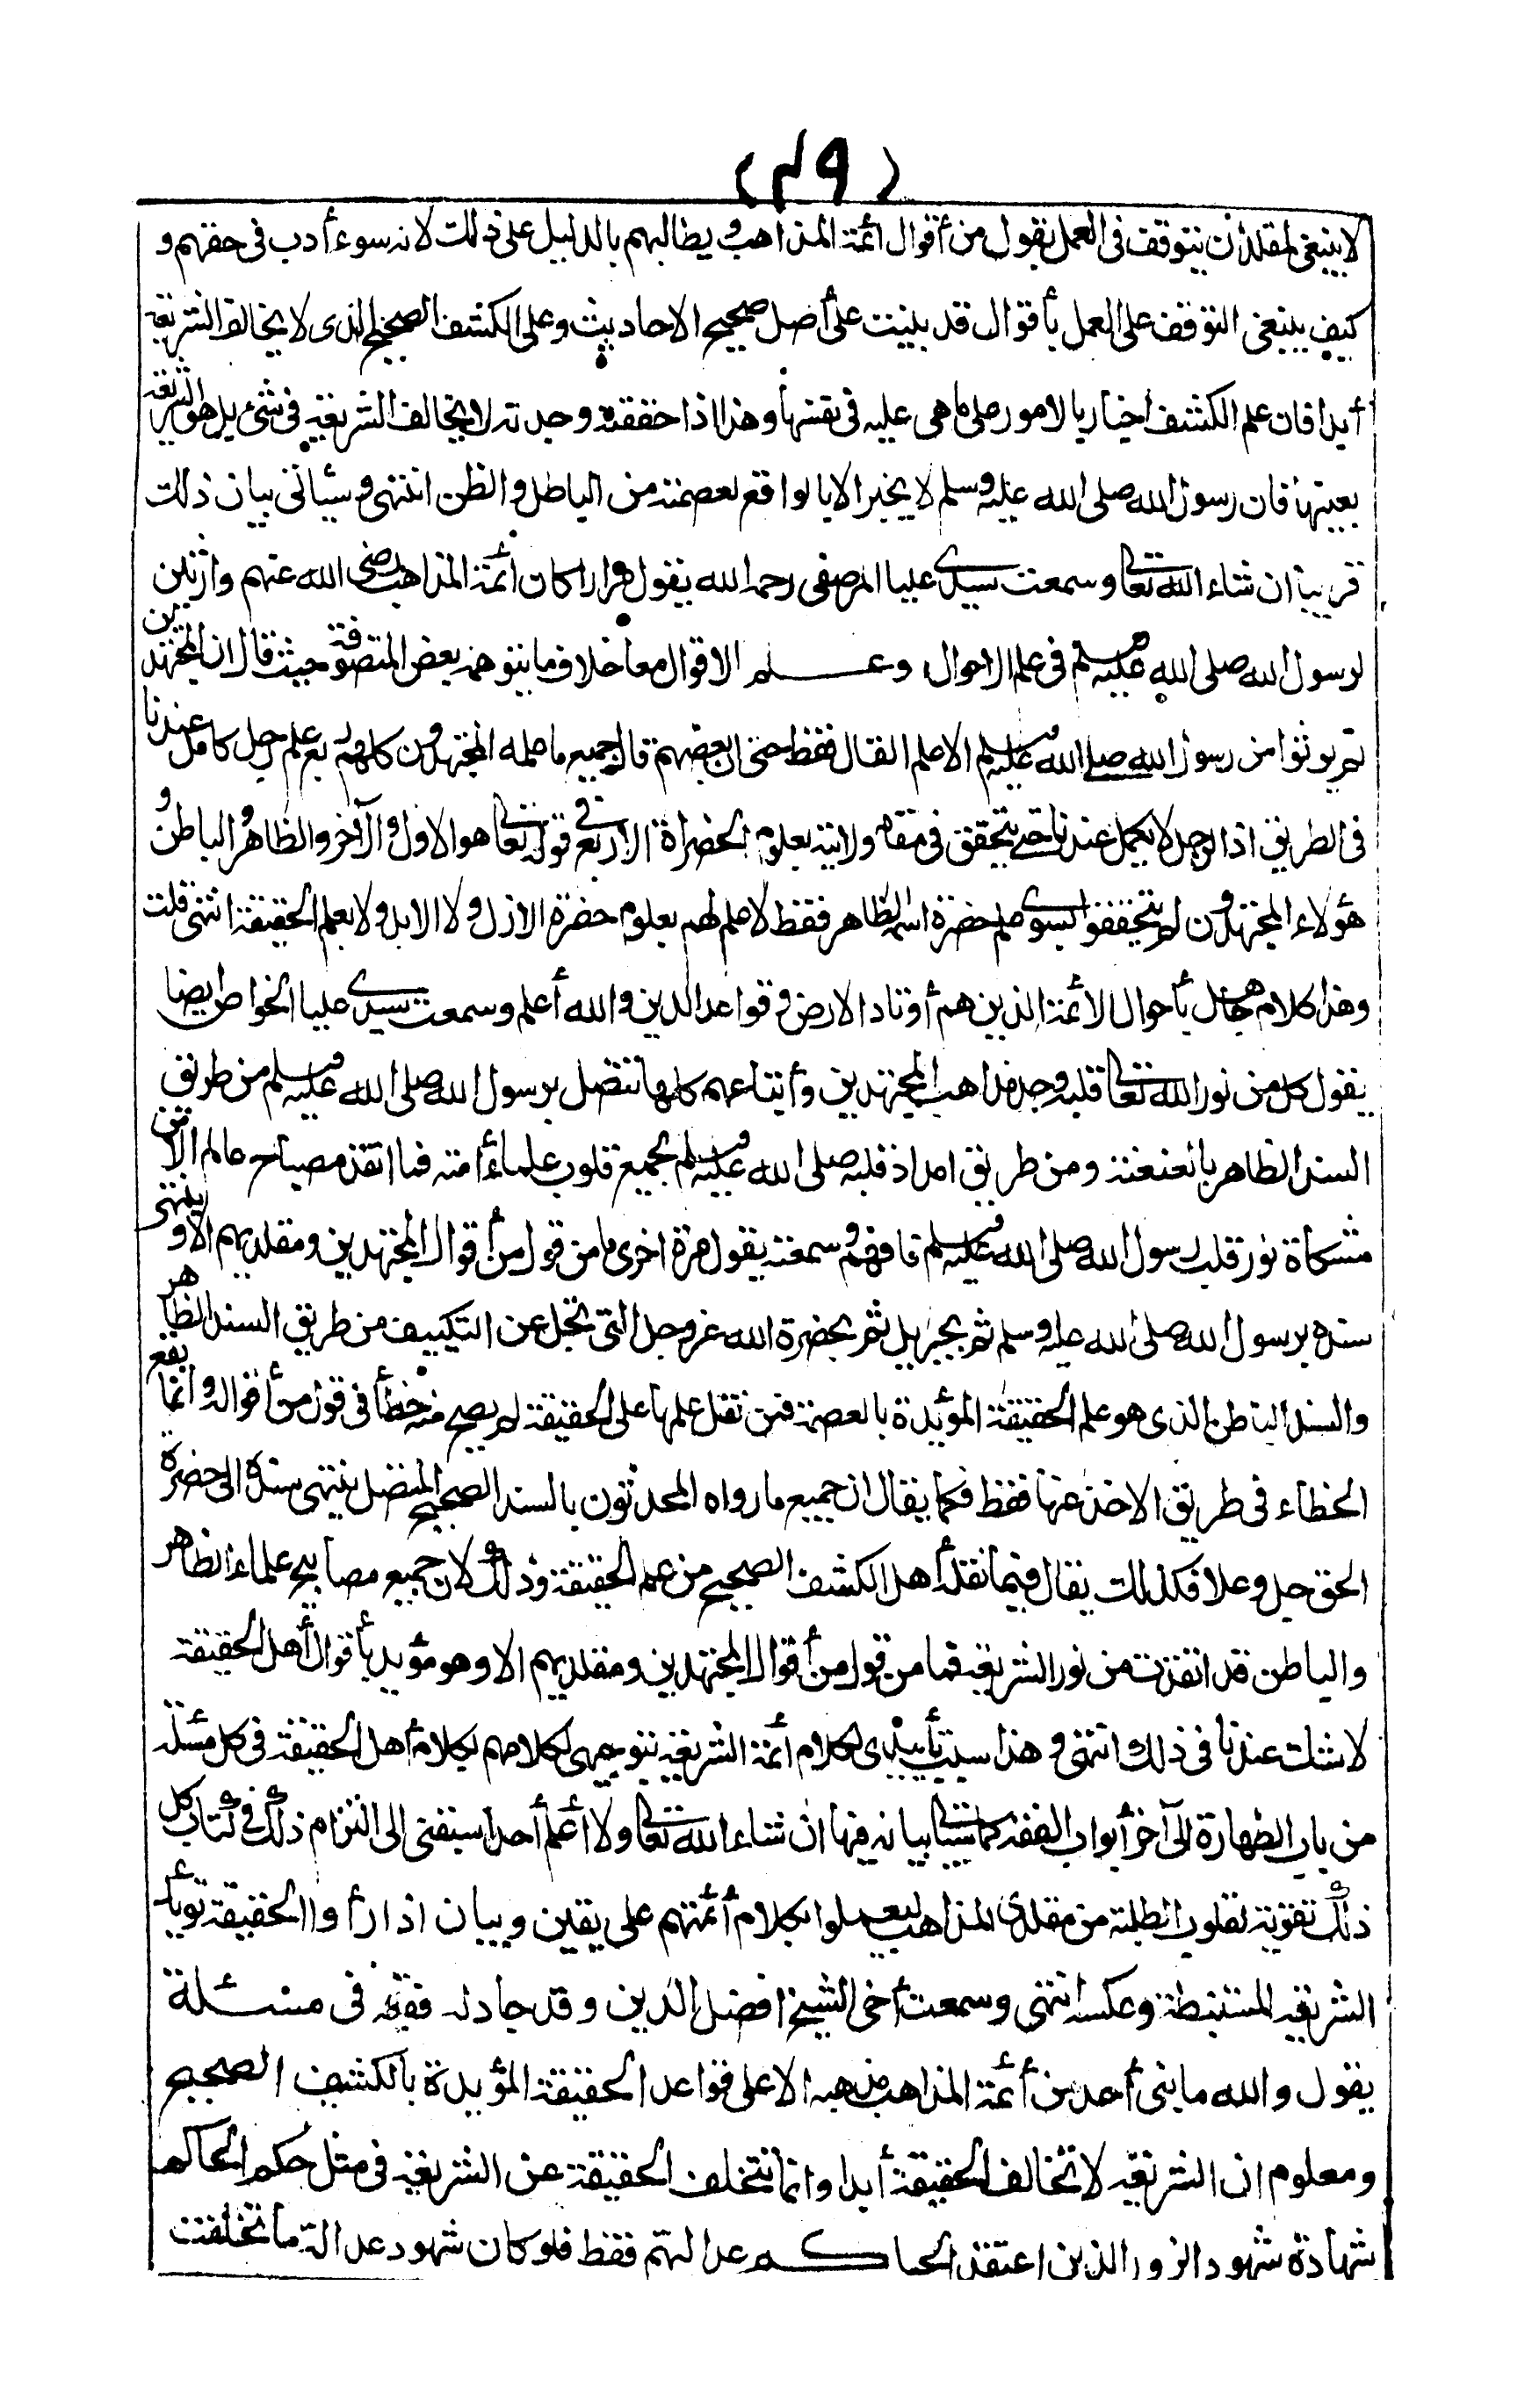 (٤٩)
لا ينبغى لمقلد أن يتوقف فى العمل بقول من أقوال ائمة المذاهب و يطالبهم بالدليل على ذلك لانه سوء أدب فى حقهم و
كيف ينبغى التوقف على العمل بأقوال قد بنيت على أصل صحيح الاحاديث وعلى الكشف الصحيح الذى لا يخالف الشريعة
أبدا فان علم الكشف اخبار بالامور على ما هى عليه فى نفسها وهذا اذا حققته وجدته لا يخالف الشريعة فى شئ بل هو الشريعة
بعينها فان رسول الله صلى الله عليه وسلم لا يخبر الا بالواقع لعصمته من الباطل والظن انتهى وسيأتى بيان ذلك
قريبا ان شاء الله تعالى وسمعت سيدى عليا المرصفى رحمه الله يقول مرارا كان أئمة المذاهب رضى الله عنهم وارثين
لرسول الله صلى الله عليه وسلم فى علم الاحوال وعلم الاقوال معا خلاف ما يتوهمه بعض المتصوفة حيث قال ان المجتهدين
لم يرثوا من رسول الله صلى الله عليه وسلم الا علم القال فقط حتى ان بعضهم قال جميع ما علمه المجتهدون كلهم ربع علم رجل كامل عندنا
فى الطريق اذ الرجل لا يكمل عندنا حتى يتحقق فى مقام ولايته بعلوم الحضراة الاربع فى قوله تعالى هو الاول والآخر والظاهر والباطن و
هؤلاء المجتهدون لم يتحققوا بسوى علم حضرة اسمه الظاهر فقط لا علم لهم بعلوم حضرة الازل ولا الابد ولا بعلم الحقيقة انتهى قلت
وهذا كلام جاهل بأحوال الأئمة الذين هم أوتاد الارض وقواعد الدين والله أعلم وسمعت سيدى عليا الخواص ايضا
يقول كل من نور الله تعالى قلبه وجد مذاهب المجتهدين وأتباعهم كلها تتصل برسول الله صلى الله عليه وسلم من طريق
السند الظاهر بالعنعنة ومن طريق امداد قلبه صلى الله عليه وسلم لجميع قلوب علماء أمته فما اتقد مصباح عالم الا من
مشكاة نور قلب رسول الله صلى الله عليه وسلم فافهم وسمعته يقول مرة اخرى ما من قول من أقوال المجتهدين ومقلديهم الا و ينتهى
سنده برسول الله صلى الله عليه وسلم ثم بجبريل ثم بحضرة الله عز وجل التى تجل عن التكييف من طريق السند الظاهر
والسند الباطن الذى هو علم الحقيقة المؤيدة بالعصمة فمن نقل علمها على الحقيقة لم يصح منه خطأ فى قول من أقواله وانما يقع
الخطاء فى طريق الاخذ عنها فقط فكما يقال ان جميع ما رواه المحدثون بالسند الصحيح المتصل ينتهى سنده الى حضرة
الحق جل وعلا فكذلك يقال فيما نقله أهل الكشف الصحيح من علم الحقيقة وذلك لان جميع مصابيح علماء الظاهر
والباطن قد اتقدت من نور الشريعة فما من قول من أقوال المجتهدين ومقلديهم الا وهو مؤيد بأقوال أهل الحقيقة
لا شك عندنا فى ذلك انتهى و هذا سبب تأييدى لكلام أئمة الشريعة بتوجيهى لكلامهم بكلام أهل الحقيقة فى كل مسئلة
من باب الطهارة الى آخر أبواب الفقه كما سيأتى بيانه فيها ان شاء الله تعالى ولا أعلم أحدا سبقنى الى التزام ذلك فى كتاب كل
ذلك تقوية لقلوب الطلبة من مقلدى المذاهب ليعملوا بكلام أئمتهم على يقين وبيان اذا رأوا الحقيقة تؤيد
الشريعة المستنبطة وعكسه انتهى وسمعت أخى الشيخ افضل الدين وقد جادله فقيه فى مسئلة
يقول والله ما بنى أحد من أئمة المذاهب مذهبه الا على قواعد الحقيقة المؤيدة بالكشف الصحيح
ومعلوم ان الشريعة لا تخالف الحقيقة أبدا وانما تتخلف الحقيقة عن الشريعة فى مثل حكم الحاكم
شهادة شهود الزور الذين اعتقد الحاكم عدالتهم فقط فلو كان شهود عدالة ما تخلفت